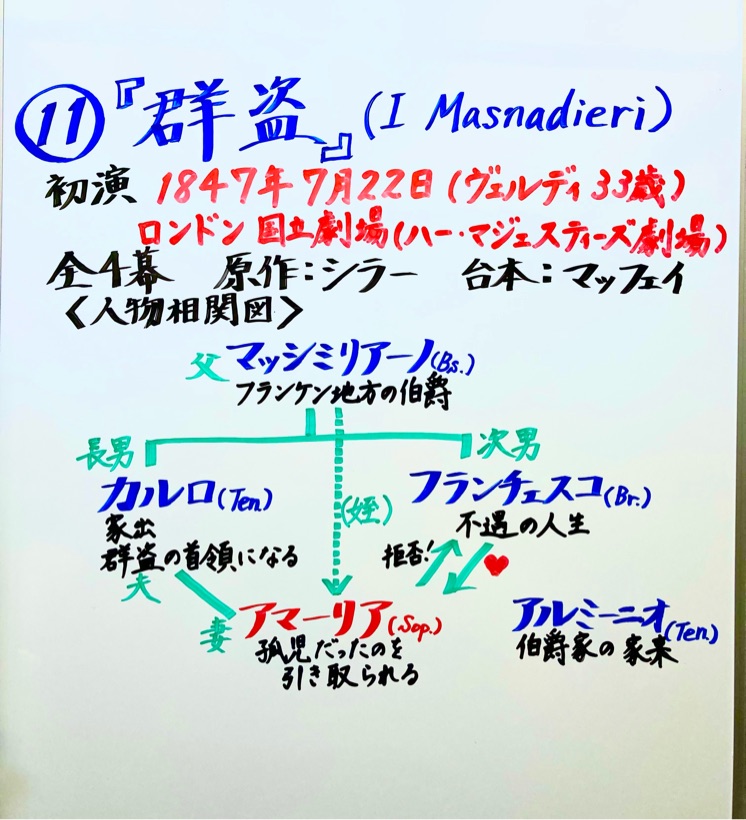 ⑪『群盗』(I Masnadieri)
初演 1847年7月22日(ヴェルディ33歳)
ロンドン国立劇場(ハー・マジェスティーズ劇場)
全4幕 原作:シラー 台本:マッフェイ
<人物相関図>
父 マッシミリアーノ(Bs.)
フランケン地方の伯爵
長男 次男
カルロ(Ten) (姪) フランチェスコ(Br.)
家出 不遇の人生
群盗の首領になる 拒否!
夫
妻 アマーリア(Sop.) アルミーニオ(Ten.)
孤児だったのを 伯爵家の家来
引き取られる